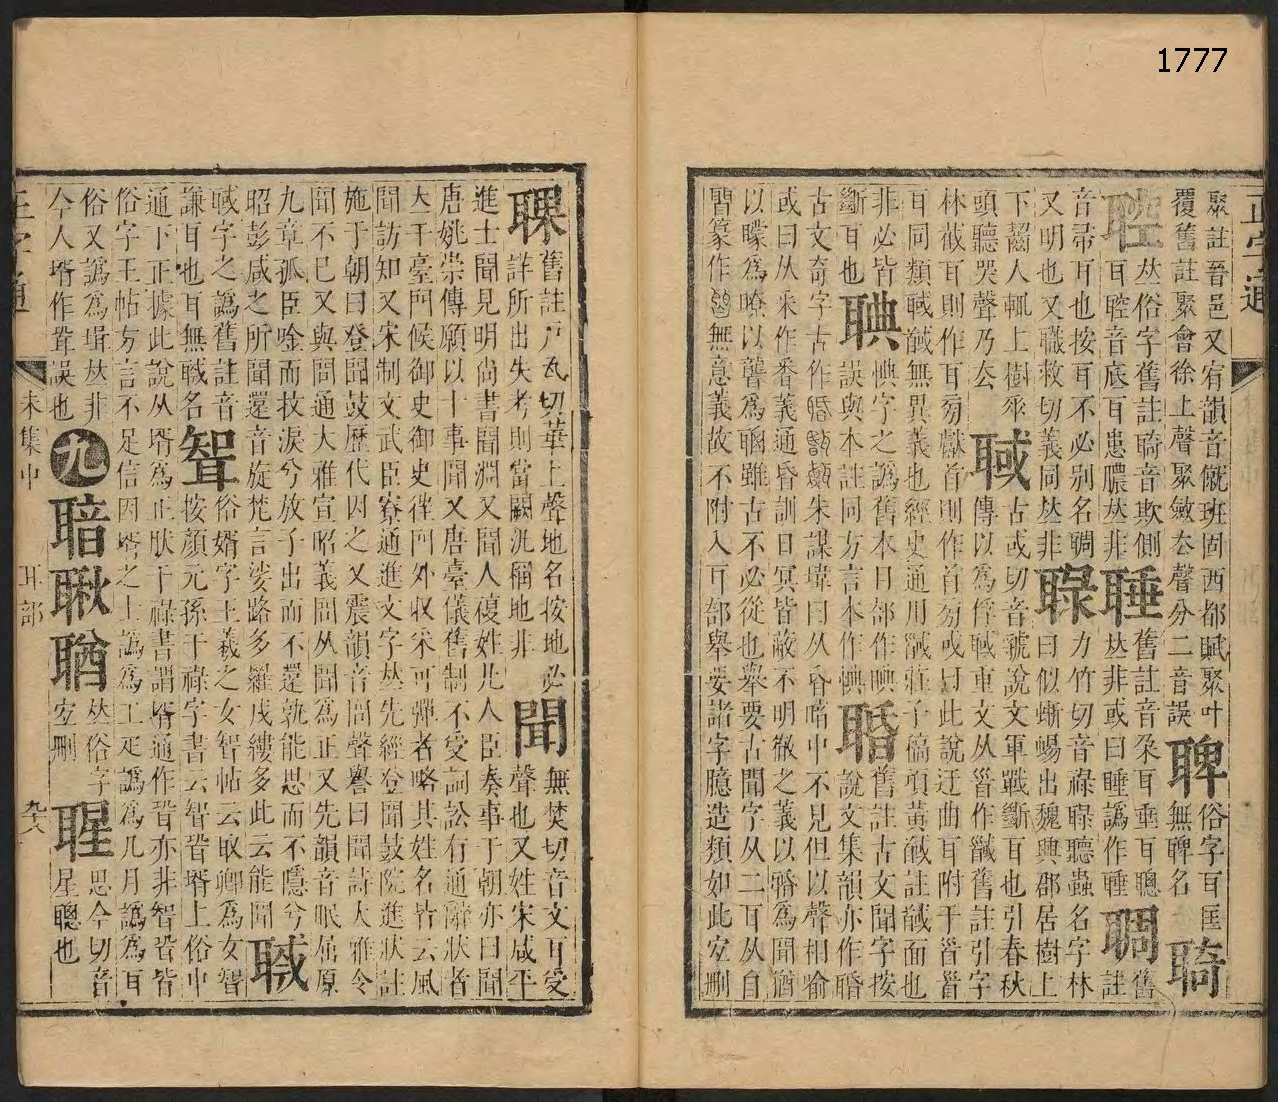 正字通
聚註晉邑又宥韻音僦班固西都賦聚叶
覆舊註聚會徐上聲聚斂去聲分二音誤
聛
俗字耳匡
無聛名
𠀤俗字舊註音欺側
耳音底耳患膿𠀤非
𠀤非或曰睡譌作
舊註音朶耳垂耳聰
舊
註
音帚耳也按耳不必别名
又明也又職救切義同𠀤非
力竹切音祿聽蟲名字林
曰似蜥蜴出魏興郡居樹上
下齧人輒上樹𠂹
頭聽哭聲乃去
聝
古或切音虢說文軍戰斷耳也引春秋
傳以爲俘聝重文从𩠐作馘舊註引字
林截耳則作耳旁獻首則作首旁或曰此說迂曲耳附于𩠐𩠐
耳同類聝馘無異義也經史通用馘莊子槁項黃馘註馘面也
非必皆
斷耳也
㥏字之譌舊本日部作晪
誤與本註同方言本作㥏
䎽
舊註古文聞字按
說文集韻亦作䎽
古文奇字古作䎽朱謀㙔曰从昏喑中不見但以聲相喻
或曰从釆作番義通昏訓日冥皆蔽不明徹之義以䎽爲聞猶
以矇爲瞭以聾爲聰雖古不必從也舉要古聞字从二耳从自
篆作無意義故不附入耳部舉要諸字臆造類如此宐刪
舊註戸瓦切華上聲地名按地必
詳所出失考則當闕汎稱地非
聞
無焚切音文耳受
聲也又姓宋咸平
進士聞見明尚書聞淵又聞人複姓凡人臣奏事于朝亦曰聞
唐姚崇傳願以十事聞又唐臺儀舊制不受詞訟有通辭狀者
立于臺門候御史御史徑門外收采可彈者略其姓名皆云風
聞訪知又宋制文武臣寮通進文字𠀤先經登聞鼓院進狀註
施于朝曰登聞鼓歷代因之又震韻音問聲譽曰聞詩大雅令
聞不已又與問通大雅宣昭義問从聞爲正又先韻音眠屈原
九章孤臣唫而抆淚兮放子出而不還孰能思而不隱兮
昭彭咸之所聞還音旋梵言娑路多羅戍縷多此云能聞
聝字之譌舊註音
謙耳也耳無名
聟
俗婿字王羲之女聟帖云取卿爲女聟
按顏元孫干祿字書云聟㛂壻上俗中
通下正據此說从壻爲正肰干祿書謂壻通作㛂亦非聟㛂皆
俗字王帖方言不足信因壻之土譌爲工疋譌爲几月譌爲耳
俗又譌爲𠀤非
今人壻作聟誤也
九
𠀤俗字
宐刪
思今切音
星聰也
正字通
未集中
耳部
1777